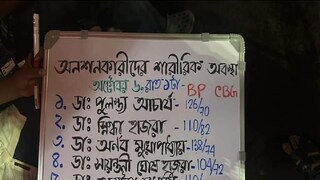 অনশনকারীদের শারীরিক অবস্থা
অক্টোবর ৬, রাত ১টা BP CBG
১. ডাঃ পুলস্ত্য আচার্য - 126/70
২. ডাঃ স্নিগ্ধা হাজরা - 110/82
৩. ডাঃ অর্ণব মুখোপাধ্যায় - 138/74
৪. ডাঃ সায়ন্তনী ঘোষ হাজরা - 104/72